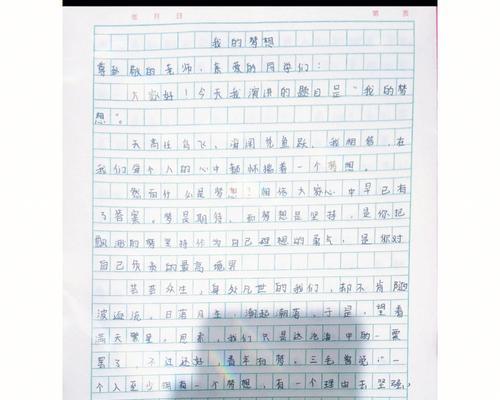 年 月 日 第 页
我的梦想
尊敬的老师、亲爱的同学们：
大家好！今天我演讲的题目是"我的梦
想"。
天高任鸟飞，海阔凭鱼跃，我相信，在
我们每个人的心中都怀揣着一个梦想。
然而什么是梦想？相信大家心中早已有
了答案。梦是期待，而梦想是坚持，是你把
飘渺的梦坚持作为自己理想的勇气，是你对
自己负责的最高境界
芸芸众生，身处凡世的我们，却不肯随
波逐流，日落月生，潮起潮落，于是，望着
满天繁星，思索，我们只是这沧海中的一粟
罢了，不过还好，青年有梦，三毛曾说："一
个人至少拥有一个梦想，有一个理由去坚强。